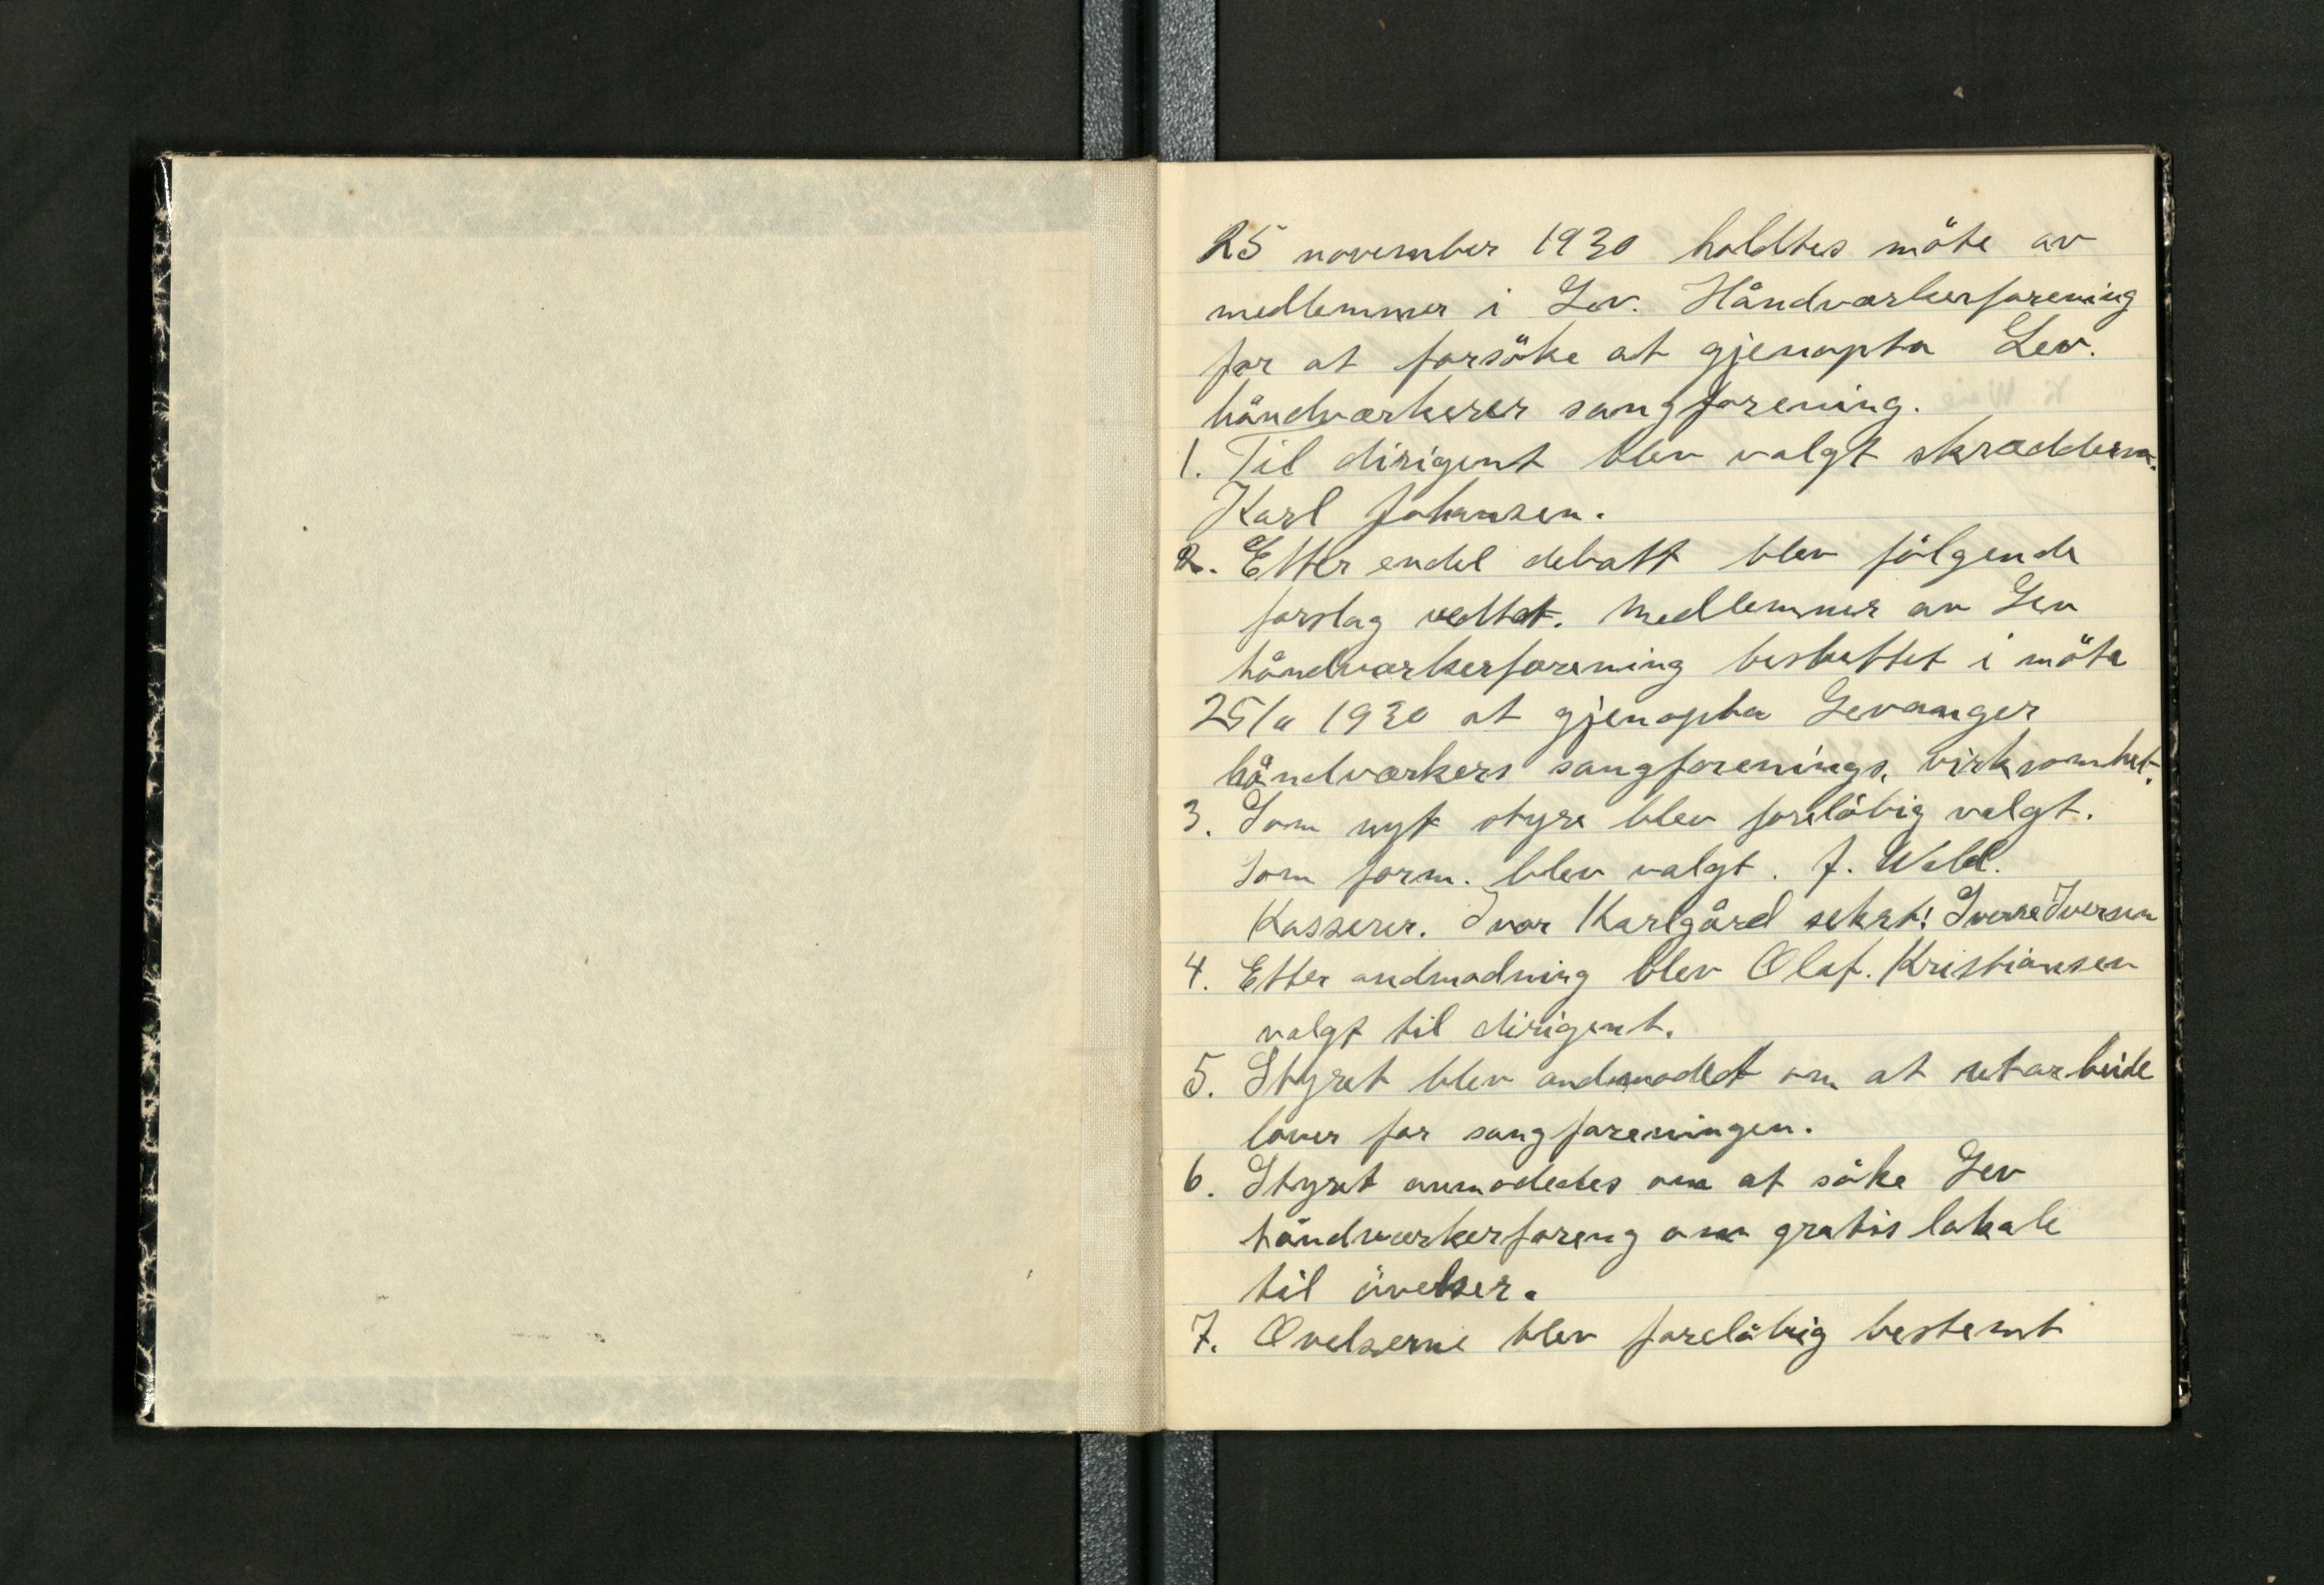 25 november 1930 holdtes möte av
medlemmer i Lev. Håndværkerforening
for at forsöke at gjenopta Lev.
håndværkerer sangforening.
1. Til dirigent blev valgt skrædderm.
Karl Johansen.
2. Etter endel debatt blev fölgende
forslag vedtat. Medlemmer av Lev
håndværkerforening besluttet i möte
25/11 1930 at gjenopta Levanger
håndværkers sangforenings virksomhet.
3. Som nyt styre blev forelöbig valgt.
Som form. blev valgt. J. Wold.
Kasserer. Ivar Karlgård sekrt! Sverre Iversen
4. Etter andmodning blev Olaf. Kristiansen
valgt til dirigent.
5. Styret blev andmodet om at utarbeide
lover for sangforeningen.
6. Styret anmodedes om at söke Lev
håndværkerforeng om gratis lokale
til övelser.
7. Ovelserne blev forelöbig bestemt